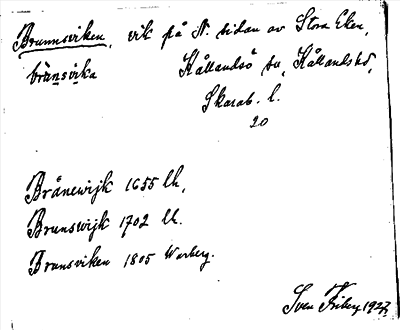 Brunnsviken, vik på N. sidan av Stora Eken,
brånsvika Kållandsö sn, Kållandshd,
Skarab. l.
20
Brånewijk 1655 lk,
Brunswijk 1702 lk.
Brunsviken 1805 Warberg.
Sven Friberg 1927,